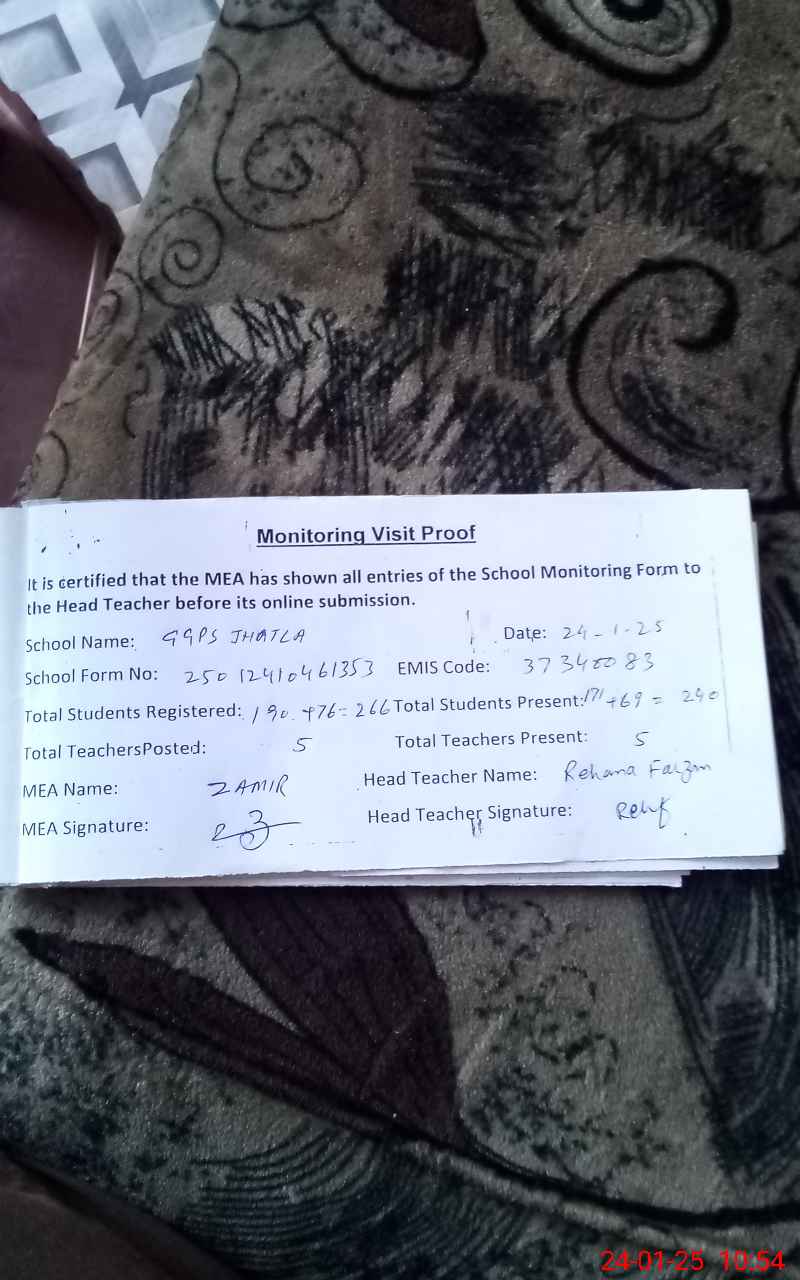 Monitoring Visit Proof
It is certified that the MEA has shown all entries of the School Monitoring Form to
the Head Teacher before its online submission.
School Name: GGPS JHATLA Date: 24-1-25
School Form No: 2501241046 1353 EMIS Code: 37340083
Total Students Registered: 190+76=266 Total Students Present: 171+69= 240
Total TeachersPosted: 5 Total Teachers Present: 5
MEA Name: ZAMIR Head Teacher Name: Rehana
MEA Signature: Head Teacher Signature:
24-01-25 10:54